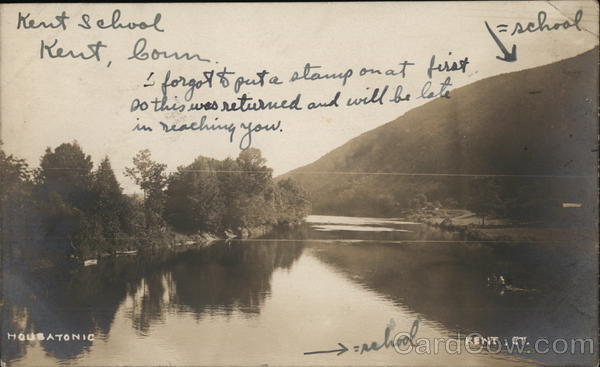 Kent School
= school
Kent, Conn.
I forgot to put a stamp on at first
so this was returned and will be late
in reaching you.
HOUSATONIC
= school
KENT, CT.
CardCow.com